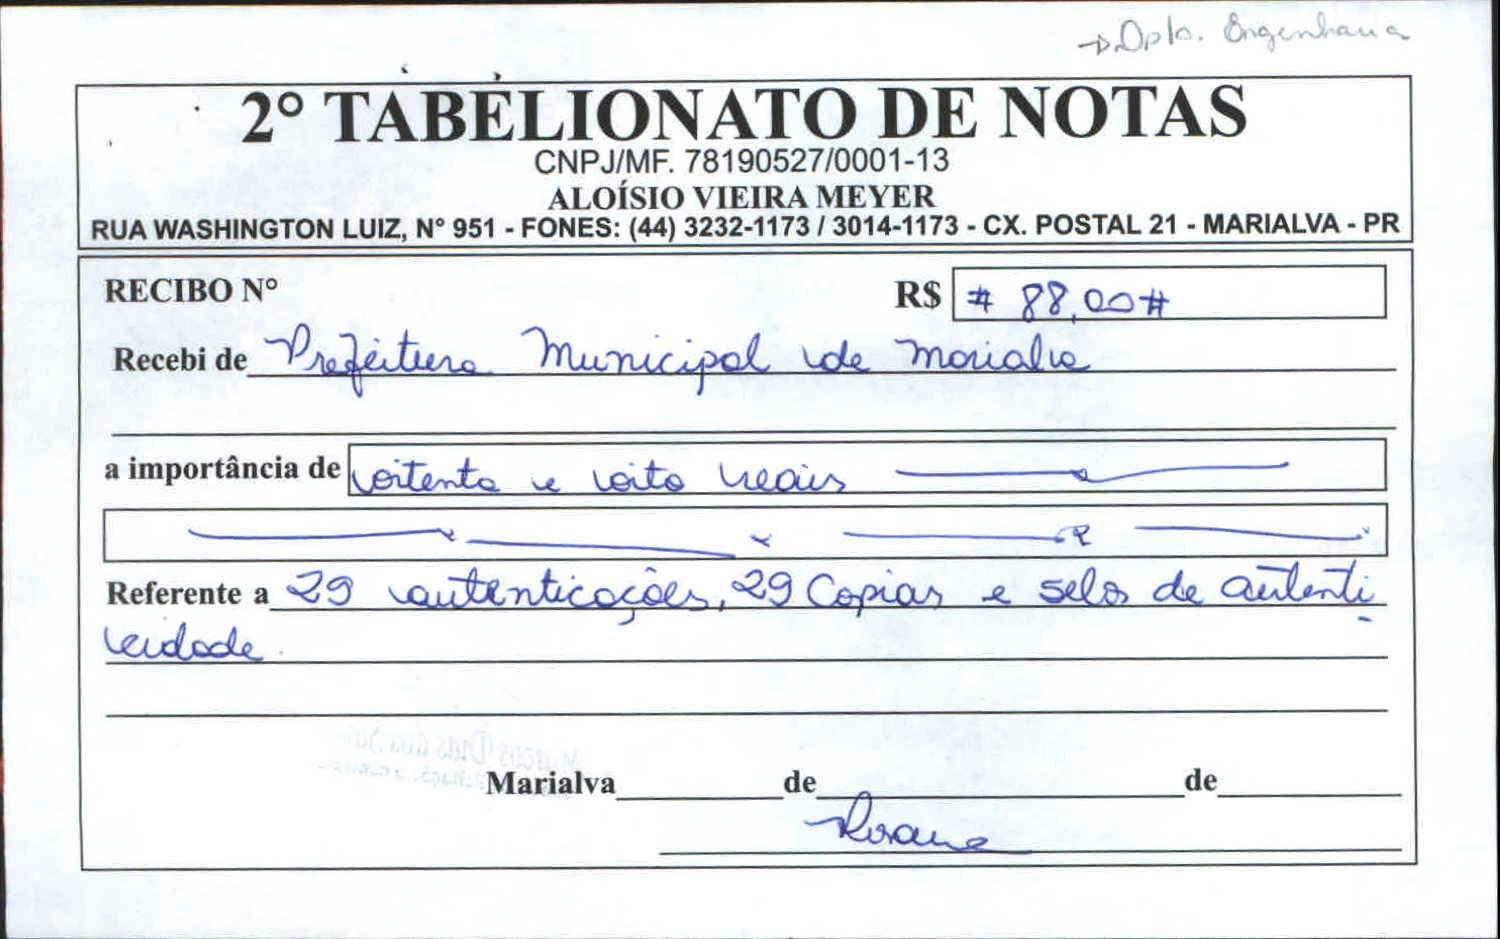 → Dpto. Engenharia
2° TABELIONATO DE NOTAS
CNPJ/MF. 78190527/0001-13
ALOÍSIO VIEIRA MEYER
RUA WASHINGTON LUIZ, N° 951 - FONES: (44) 3232-1173 / 3014-1173 - CX. POSTAL 21 - MARIALVA - PR
RECIBO N° R$ # 88,00 #
Recebi de Prefeitura Municipal de Marialva
a importância de oitenta e oito reais
Referente a 29 autenticações, 29 Copias e selos de autenti
cidade.
Marialva de de
Rosane